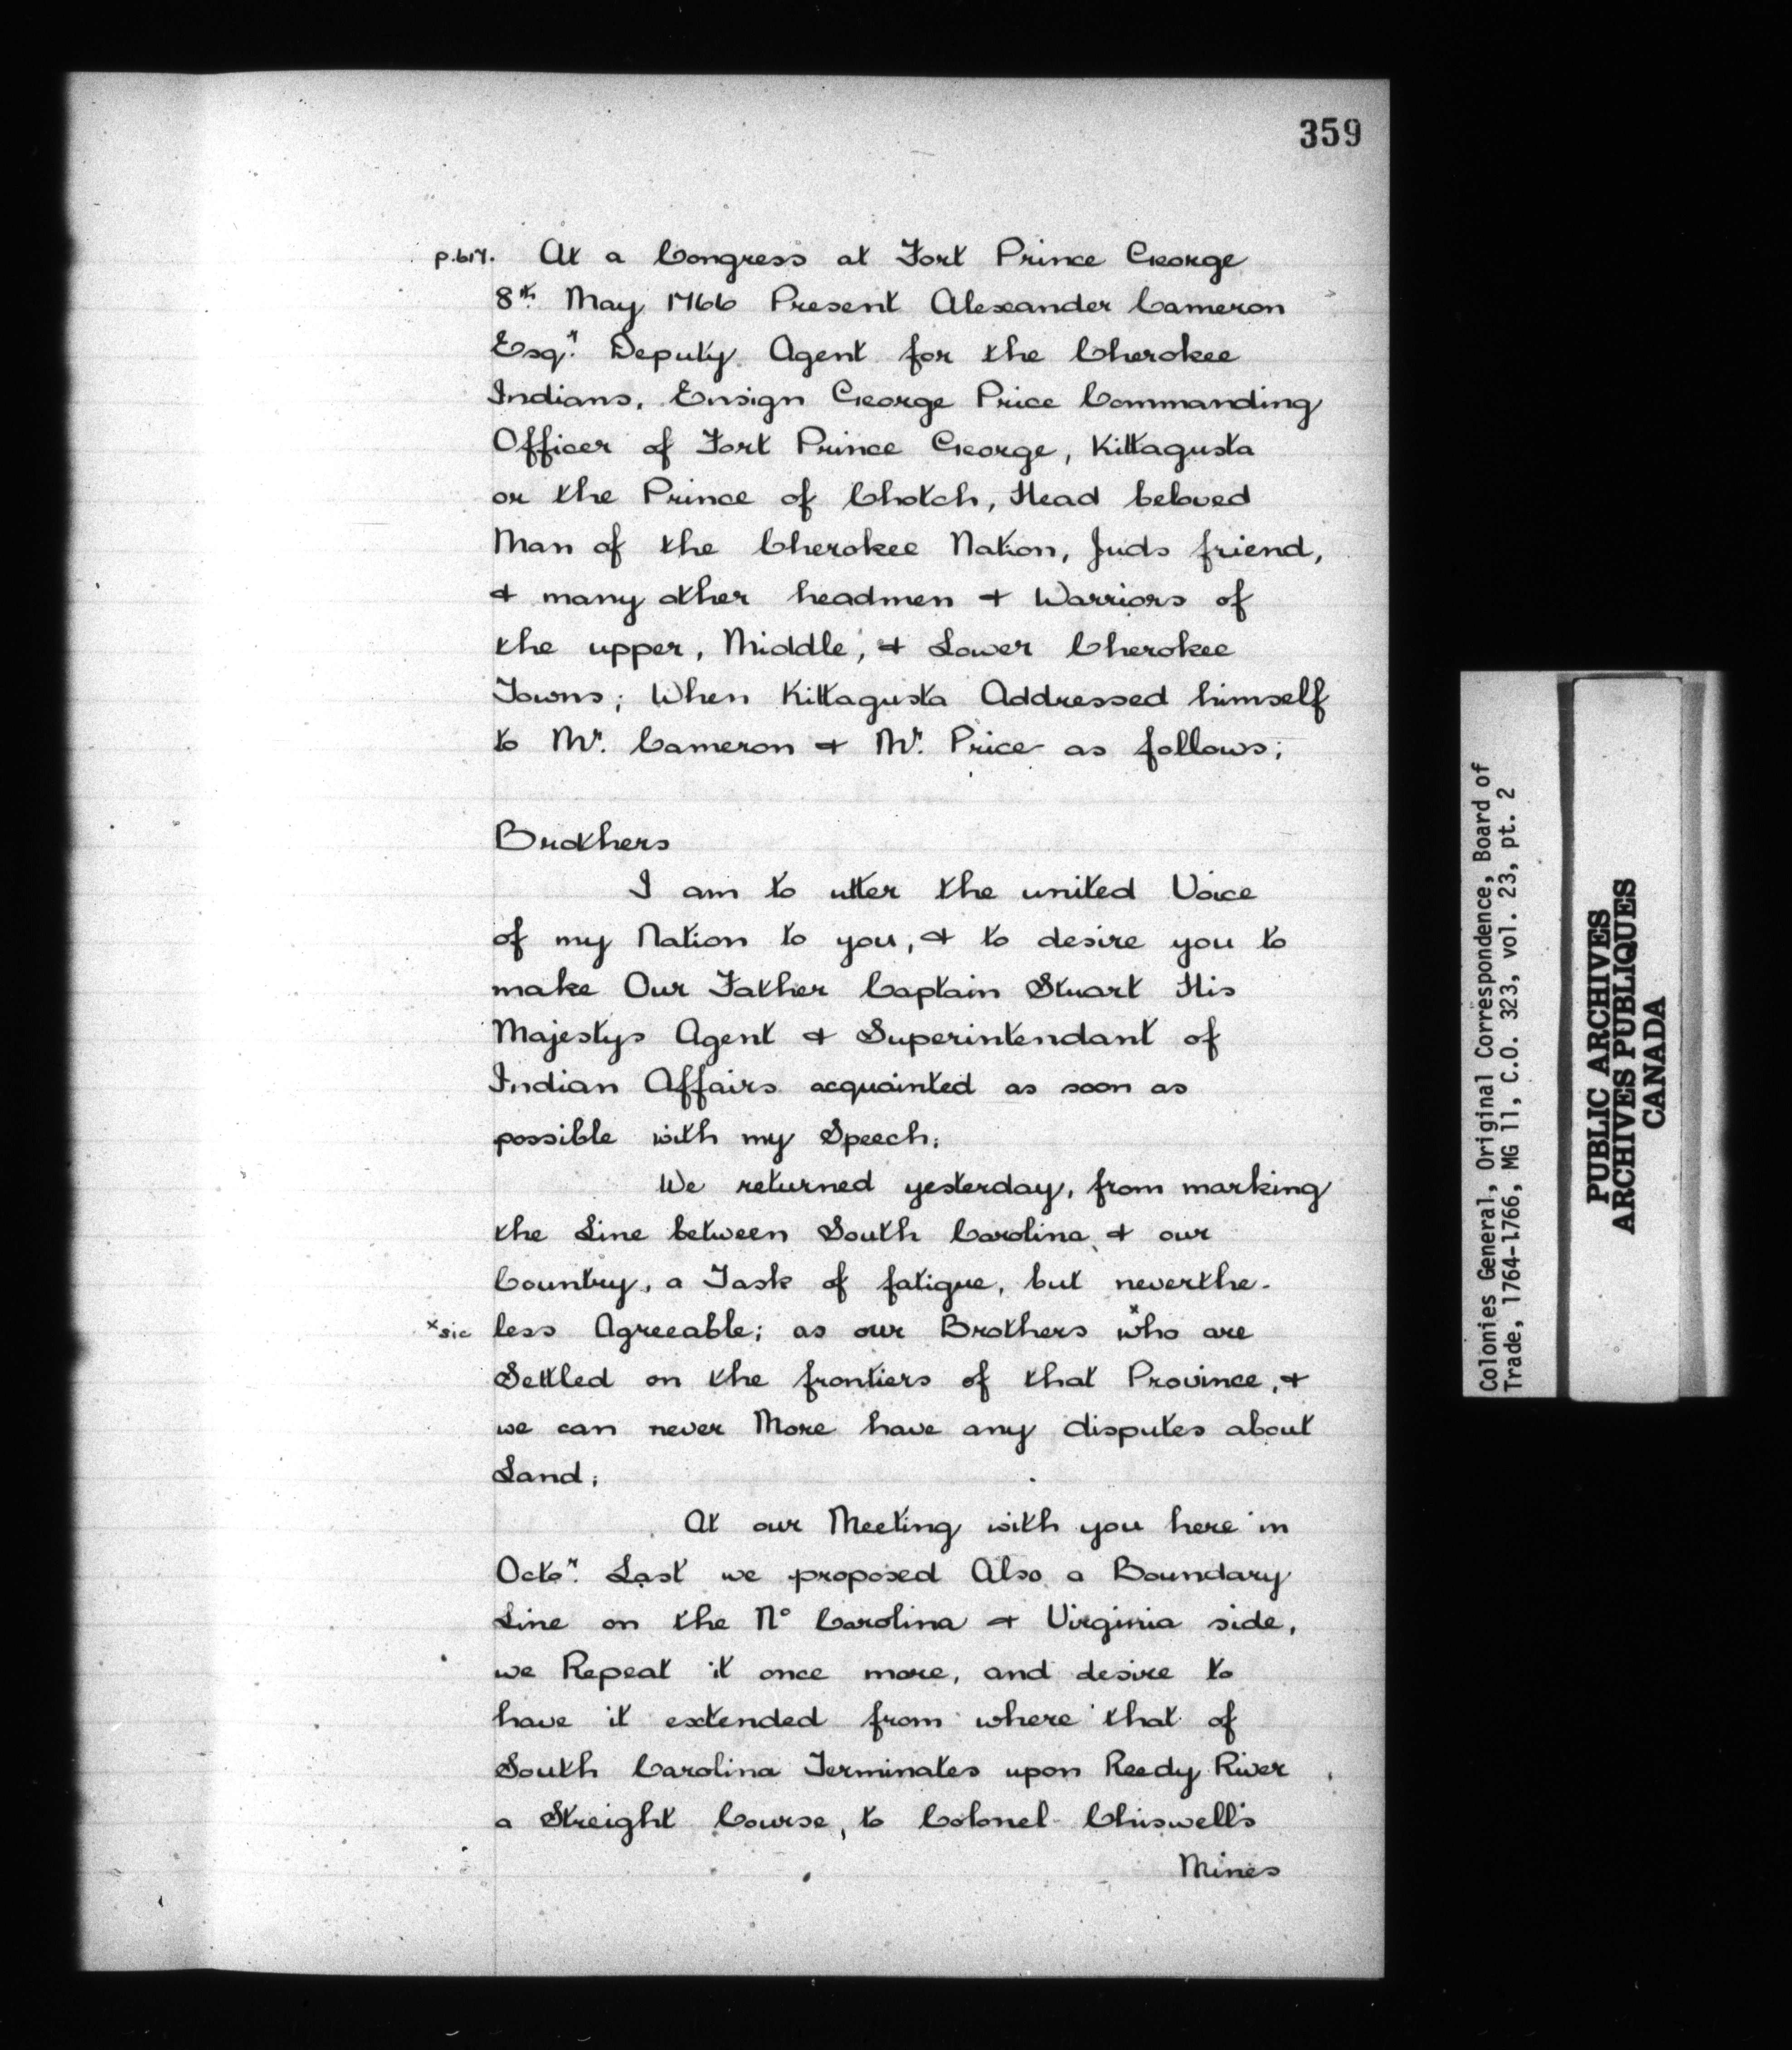 359
p.617. At a Congress at Fort Prince George
8th May 1766 Present Alexander Cameron
Esqr. Deputy Agent for the Cherokee
Indians, Ensign George Price Commanding
Officer of Fort Prince George, Kittagusta
or the Prince of Chotch, Head beloved
Man of the Cherokee Nation, Juds friend,
& many other headmen & Warriors of
the upper, Middle, & Lower Cherokee
Towns; When Kittagusta Addressed himself
to Mr. Cameron & Mr. Price as follows;
Brothers
I am to utter the united Voice
of my Nation to you, & to desire you to
make Our Father Captain Stuart His
Majestys Agent & Superintendant of
Indian Affairs acquainted as soon as
possible with my Speech;
We returned yesterday, from marking
the Line between South Carolina & our
Country, a Task of fatigue, but neverthe-
x sic less Agreeable; as our Brothers x who are
Settled on the frontiers of that Province, &
we can never More have any disputes about
Land;
At our Meeting with you here in
Octor. Last we proposed Also a Boundary
Line on the No Carolina & Virginia side,
we Repeat it once more, and desire to
have it extended from where that of
South Carolina Terminates upon Reedy River
a Streight Course, to Colonel Chiswell's
Mines
Colonies General, Original Correspondence, Board of
Trade, 1764-1766, MG 11, C.O. 323, vol. 23, pt. 2
PUBLIC ARCHIVES
ARCHIVES PUBLIQUES
CANADA